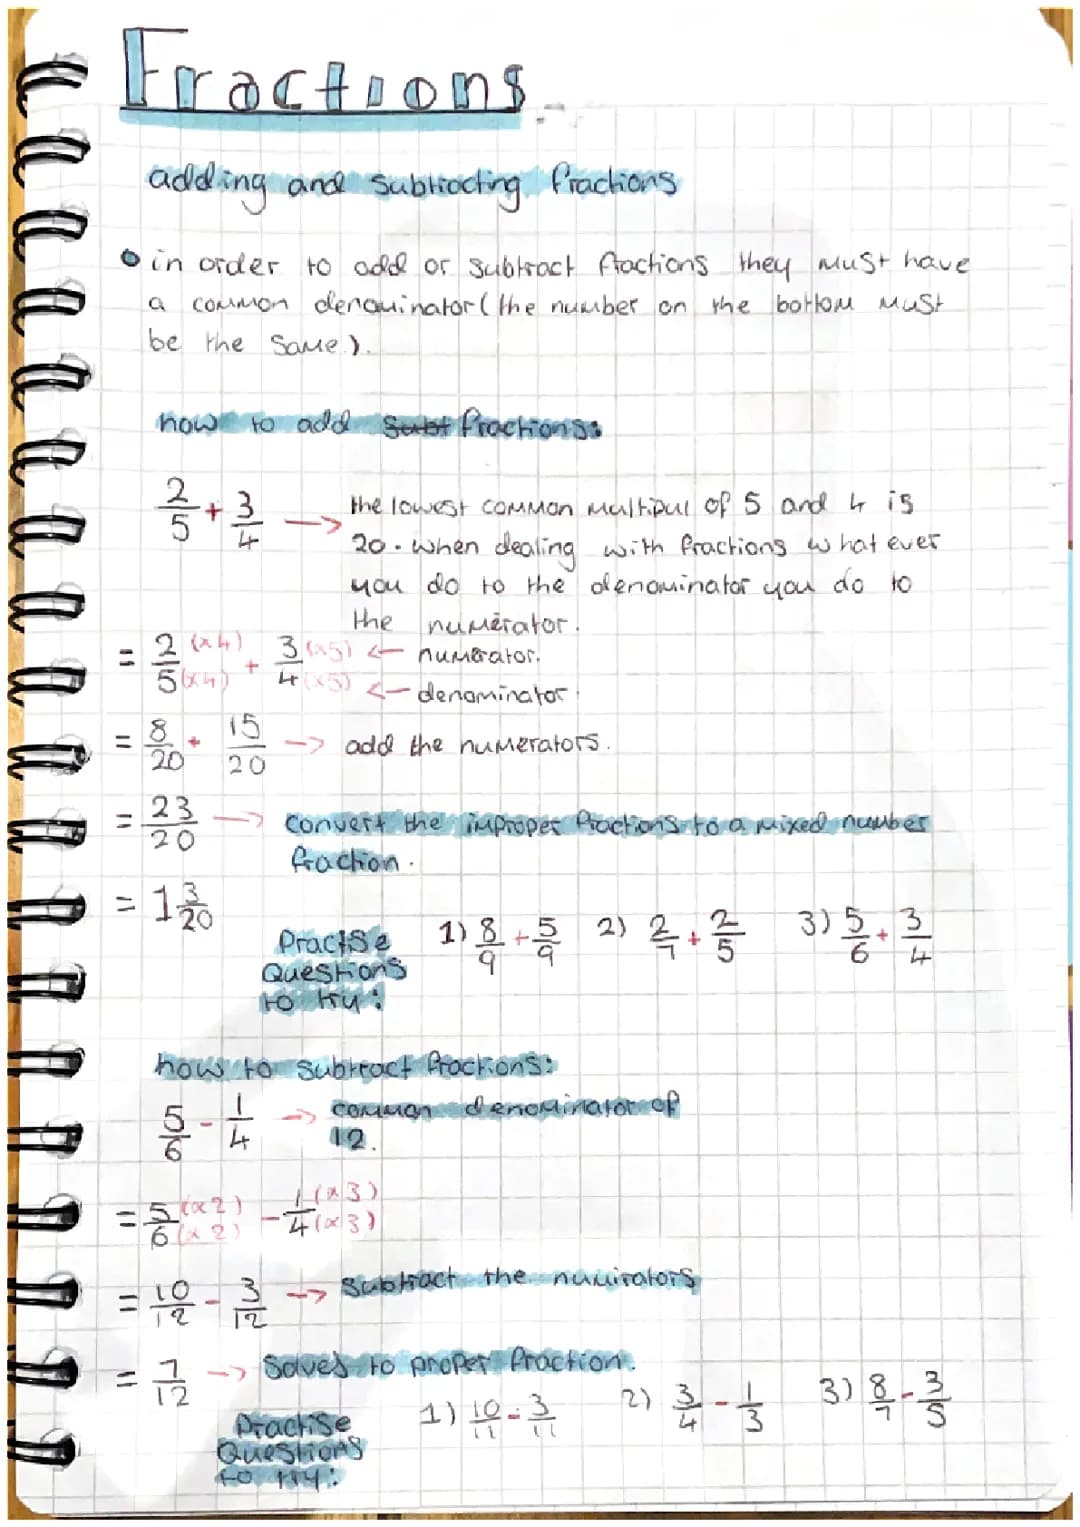 Fractions
adding and subtracting fractions
in order to add or subtract fractions they must have
a common denominator (the number on the bottom must
be the same).
how to add subt fractions:
2/5 + 3/4 → the lowest common multipul of 5 and 4 is
20. when dealing with fractions what ever
you do to the denominator you do to
the numerator.
= 2 (x4)/5 (x4) + 3 (x5)/4 (x5) ← numerator.
← denominator.
= 8/20 + 15/20 → add the numerators.
= 23/20 → convert the improper fractions to a mixed number
fraction.
= 1 3/20
Practise Questions to try: 1) 8/9 + 5/9 2) 2/7 + 2/5 3) 5/6 + 3/4
how to subtract fractions:
5/6 - 1/4 → common denominator of
12.
= 5 (x2)/6 (x2) - 1 (x3)/4 (x3)
= 10/12 - 3/12 → Subtract the numirators
= 7/12 → Solves to proper fraction.
Practise Questions to try: 1) 10/11 - 3/11 2) 3/4 - 1/3 3) 8/7 - 3/5